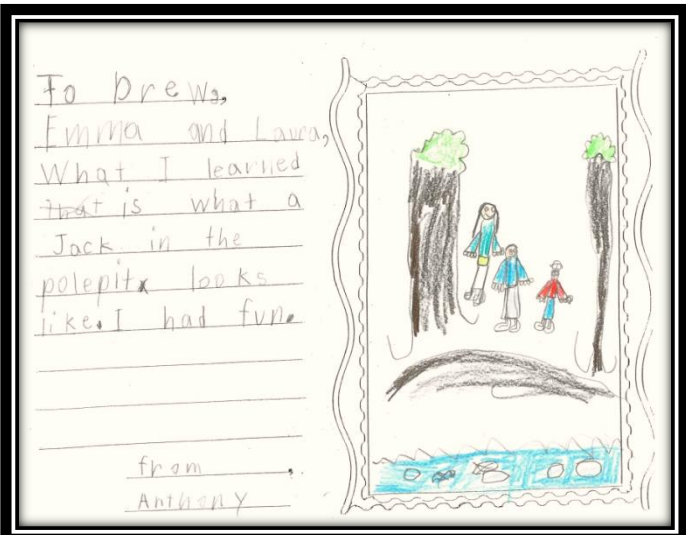 To Drew,
Emma and Laura,
What I learned
that is what a
Jack in the
polepit looks
like. I had fun.
from
Anthony